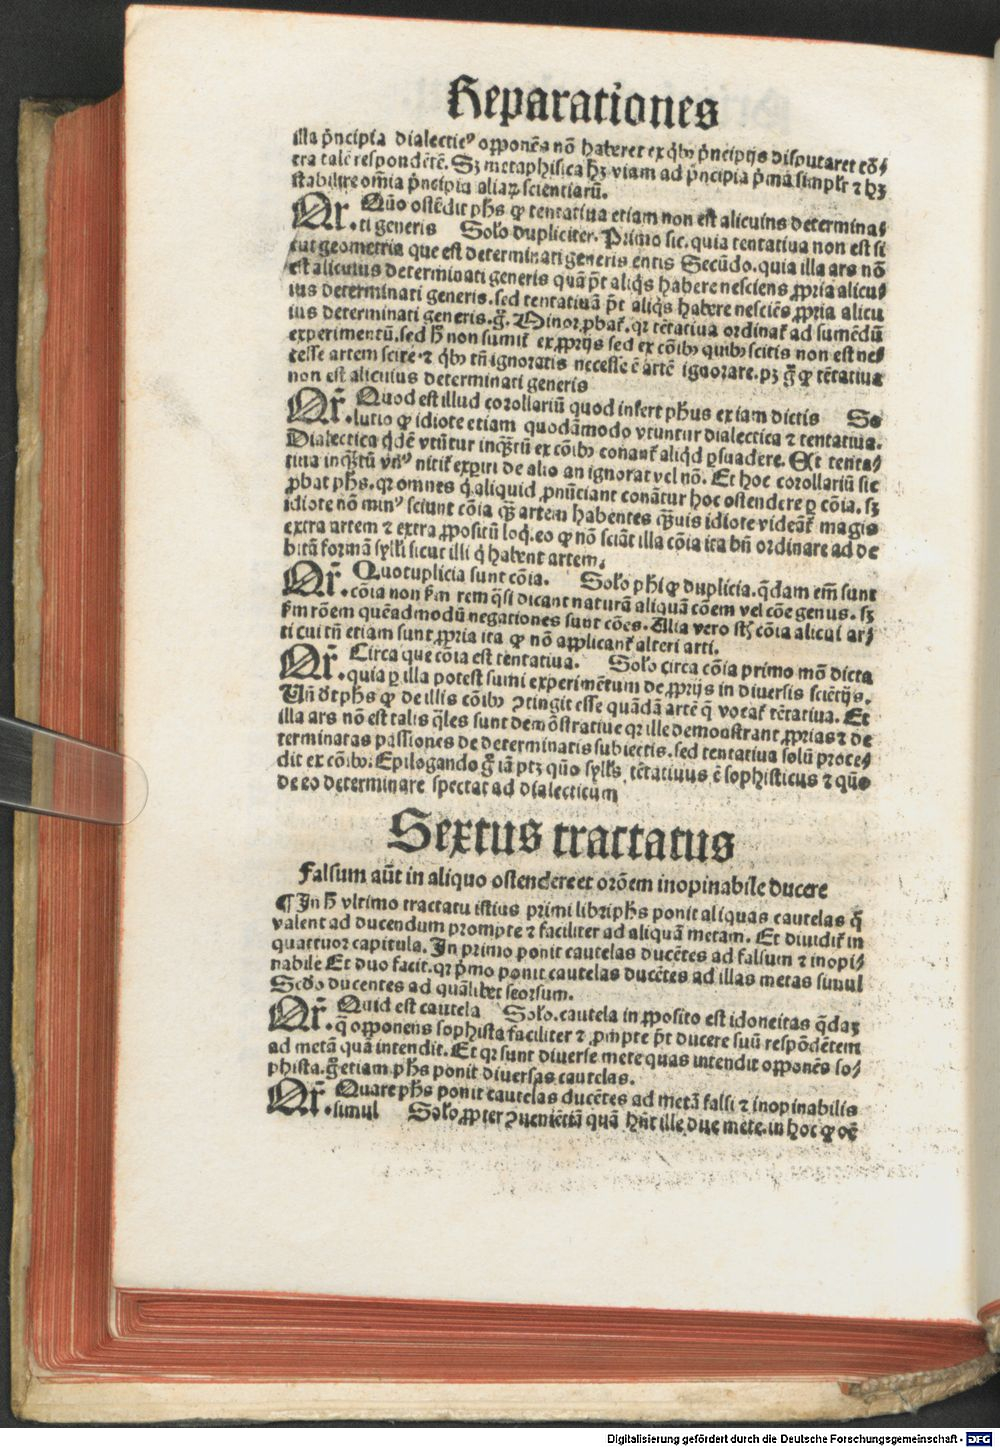 Reparationes
illa pͥncipia dialecticꝰ opponēs nō haberet ex qͥbꝫ pͥncipijs disputaret cō⸗
tra talē respondētē. Sꝫ metaphisica hꝫ viam ad pͥncipia pͥma simplr̄ ⁊ hꝫ
stabilire om̄ia pͥncipia aliaꝝ scientiarū.
Qr̄. Quō ostēdit ph̄s ꝙ tentatiua etiam non est alicuius determina⸗
ti generis Solo dupliciter. Primo sic. quia tentatiua non est si
cut geometria que est determinati generis entis Secūdo. quia illa ars nō
est alicuius determinati generis quā pt̄ aliqͥs habere nesciens ꝓpria alicu⸗
ius determinati generis. sed tentatiuā pt̄ aliqͥs habere nesciēs ꝓpria alicu
ius determinati generis. gͦ. Minor ꝓbat᷑. qꝛ tētatiua ordinat᷑ ad sumēdū
experimentū. sed h̄ non sumit᷑ ex ꝓprijs sed ex cōibꝫ quibꝫ scitis non est ne⸗
cesse artem scire. ⁊ qͥbꝫ tn̄ ignoratis necesse ē artē ignorare. pꝫ gͦ ꝙ tētatiua
non est alicuius determinati generis
Qr̄. Quod est illud corollariū quod infert ph̄us ex iam dictis So
lutio ꝙ idiote etiam quodāmodo vtuntur dialectica ⁊ tentatiua.
Dialectica qͥdē vtūtur inqͣ̄tū ex cōibꝫ conant᷑ aliqͥd ꝑsuadere. At tenta⸗
tiua inqͣ̄tū vnꝰ nitit᷑ exꝑiri de alio an ignorat vel nō. Et hoc corollariū sic
ꝓbat ph̄s. qꝛ omnes qͥ aliquid ꝓnūciant conātur hoc ostendere ꝑ cōia. sꝫ
idiote nō minꝰ sciunt cōia qͣꝫ artem habentes qͣꝫuis idiote videāt᷑ magis
extra artem ⁊ extra ꝓpositū loqͥ. eo ꝙ nō sciāt illa cōia ita bn̄ ordinare ad de
bitā formā syll̄i sicut illi qͥ habent artem.
Qr̄. Quotuplicia sunt cōia. Solo ph̄i ꝙ duplicia. qͥdam em̄ sunt
cōia non ẜm rem qͣsi dicant naturā aliquā cōem vel cōe genus. sꝫ
ẜm rōem quēadmodū negationes sunt cōes. Alia vero st̄ cōia alicui ar⸗
ti cui tn̄ etiam sunt ꝓpria ita ꝙ nō applicant᷑ alteri arti.
Qr̄. Circa que cōia est tentatiua. Solo circa cōia primo mō dicta
quia ꝑ illa potest sumi experimētum de ꝓprijs in diuersis sciētijs.
Vn̄ dt̄ ph̄s ꝙ de illis cōibꝫ ↄtingit esse quādā artē q̄ vocat᷑ tētatiua. Et
illa ars nō est talis qͣles sunt demōstratiue qꝛ ille demonstrant ꝓprias ⁊ de
terminatas passiones de determinatis subiectis. sed tentatiua solū proce⸗
dit ex cōibꝫ. Epilogando gͦ iā ptꝫ quō syll̄s tētatiuus ē sophisticus ⁊ quō
de eo determinare spectat ad dialecticum
Sextus tractatus
Falsum aūt in aliquo ostendere et orōem inopinabile ducere
¶ In h̄ vltimo tractatu istius primi libri ph̄s ponit aliquas cautelas q̄
valent ad ducendum prompte ⁊ faciliter ad aliquā metam. Et diuidit᷑ in
quattuor capitula. In primo ponit cautelas ducētes ad falsum ⁊ inopi⸗
nabile Et duo facit. qꝛ pͥmo ponit cautelas ducētes ad illas metas simul
Scd̄o ducentes ad quālibet seorsum.
Qr̄. Quid est cautela Solo. cautela in ꝓposito est idoneitas qͥdaꝫ
q̄ opponens sophista faciliter ⁊ ꝓmpte pt̄ ducere suū respōdētem
ad metā quā intendit. Et qꝛ sunt diuerse mete quas intendit opponēs so⸗
phista. gͦ etiam ph̄s ponit diuersas cautelas.
Qr̄. Quare ph̄s ponit cautelas ducētes ad metā falsi ⁊ inopinabilis
simul Solo ꝓpter ↄueniētiā quā hn̄t ille due mete. in hoc ꝙ oē
Digitalisierung gefördert durch die Deutsche Forschungsgemeinschaft - DFG